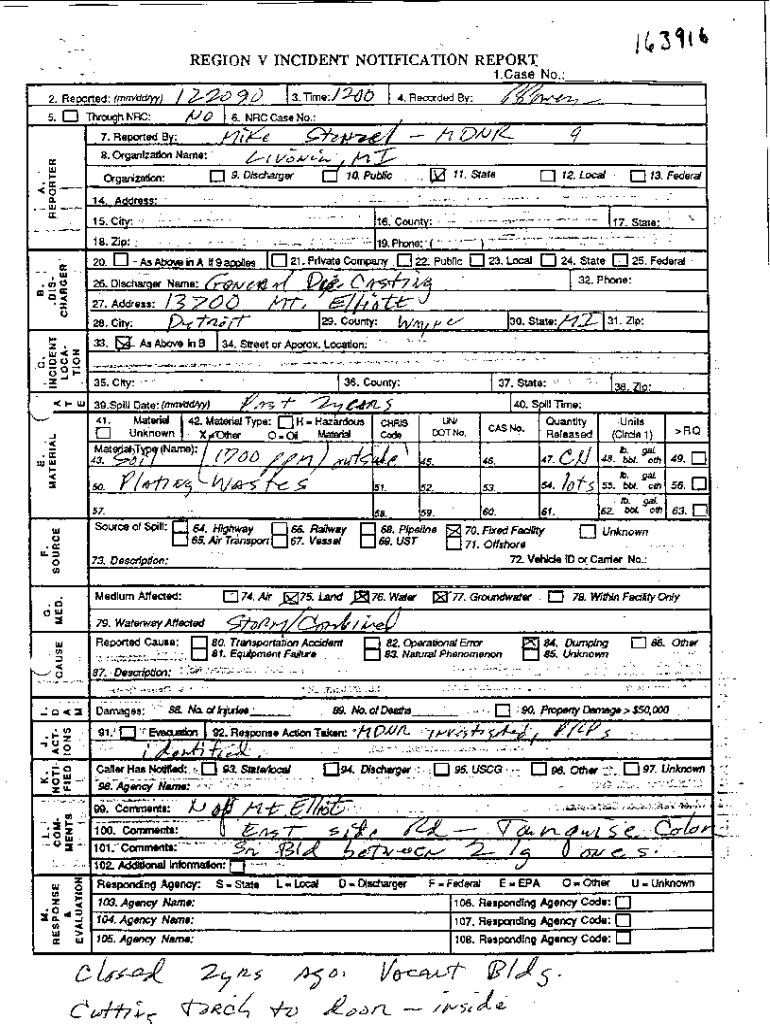 163916
REGION V INCIDENT NOTIFICATION REPORT
1.Case No.:
2. Reported: (mm/dd/yy) 122090 3. Time: 1200 4. Recorded By:
5. Through NRC: NO 6. NRC Case No.:
A. REPORTER
7. Reported By: Mike Stenzel - MDNR 9
8. Organization Name: Livonia, MI
Organization: 9. Discharger 10. Public 11. State 12. Local 13. Federal
14. Address:
15. City: 16. County: 17. State:
18. Zip: 19. Phone: ( )
B. DIS-CHARGER
20. - As Above in A if 9 applies 21. Private Company 22. Public 23. Local 24. State 25. Federal
26. Discharger Name: General Die Casting 32. Phone:
27. Address: 13700 Mt. Elliott
28. City: Detroit 29. County: Wayne 30. State: MI 31. Zip:
C. INCIDENT LOCA-TION
33. As Above in B 34. Street or Approx. Location:
35. City: 36. County: 37. State: 38. Zip:
39. Spill Date: (mm/dd/yy) Past 2 years 40. Spill Time:
E. MATERIAL
41. Material Unknown 42. Material Type: H = Hazardous Material X = Other O = Oil CHRIS Code UN/ DOT No. CAS No. Quantity Released Units (Circle 1) >RQ
Material Type (Name):
43. Soil (1700 ppm) outside 45. 46. 47. CN 48. lb. gal. bbl. oth 49.
50. Plating Wastes 51. 52. 53. 54. lots 55. lb. gal. bbl. oth 56.
57. 58. 59. 60. 61. 62. lb. gal. bbl. oth 63.
F. SOURCE
Source of Spill: 64. Highway 66. Railway 68. Pipeline 70. Fixed Facility Unknown
65. Air Transport 67. Vessel 69. UST 71. Offshore
73. Description: 72. Vehicle ID or Carrier No.:
G. MED.
Medium Affected: 74. Air 75. Land 76. Water 77. Groundwater 78. Within Facility Only
79. Waterway Affected Storm/Combined
CAUSE
Reported Cause: 80. Transportation Accident 82. Operational Error 84. Dumping 86. Other
81. Equipment Failure 83. Natural Phenomenon 85. Unknown
87. Description:
I. DAM
Damages: 88. No. of Injuries 89. No. of Deaths 90. Property Damage > $50,000
J. ACT-IONS
91. Evacuation 92. Response Action Taken: MDNR investigated, PRPs
identified.
K. NOTI-FIED
Caller Has Notified: 93. State/local 94. Discharger 95. USCG 96. Other 97. Unknown
98. Agency Name:
L. COM-MENTS
99. Comments: N off Mt Elliot
100. Comments: East side Rd - Tanquise Color
101. Comments: Sn Bld between 2 lg ones.
102. Additional Information:
M. RESPONSE & EVALUATION
Responding Agency: S = State L = Local D = Discharger F = Federal E = EPA O = Other U = Unknown
103. Agency Name: 106. Responding Agency Code:
104. Agency Name: 107. Responding Agency Code:
105. Agency Name: 108. Responding Agency Code:
Closed 2yrs ago. Vacant Bldg.
Cutting torch to door - inside